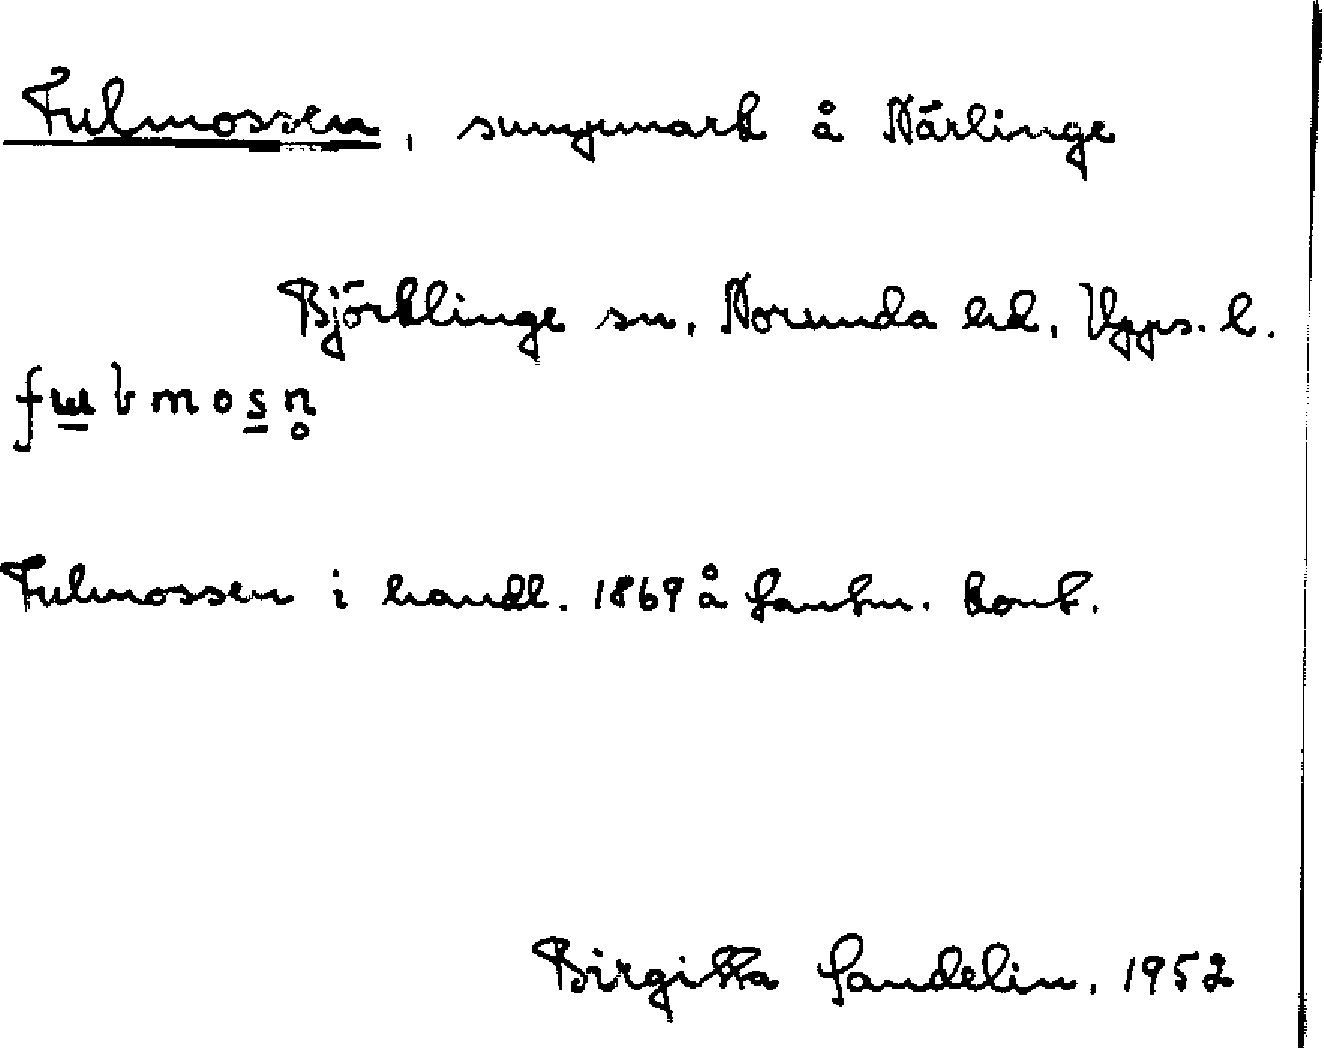 Fulmossen, sumpmark å Närlinge
Björklinge sn, Norunda hd, Upps. l.
Fulmossen i handl. 1869 å lantm. kont.
Birgitta Sandelin. 1952